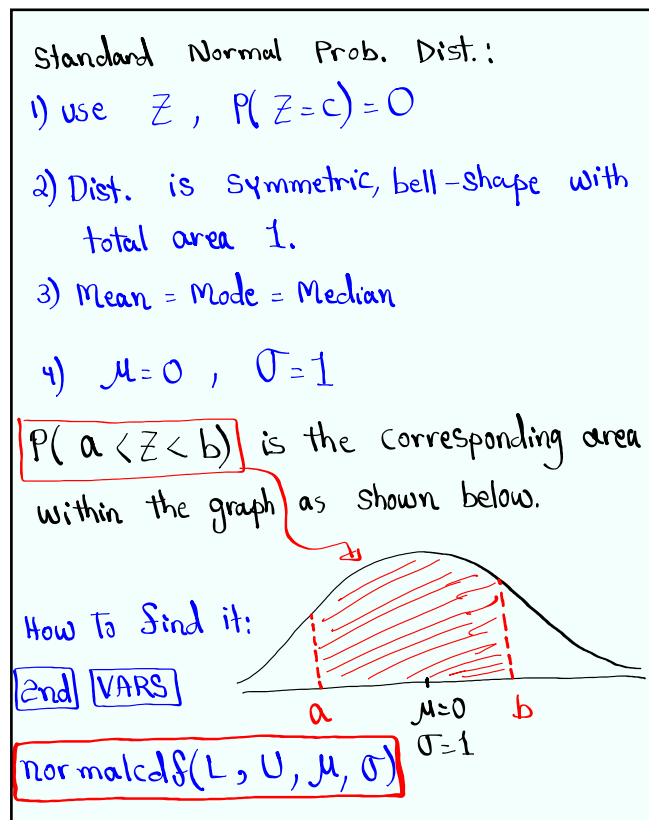 Standard Normal Prob. Dist.:
1) use Z, P(Z=c)=0
2) Dist. is symmetric, bell-shape with
total area 1.
3) Mean = Mode = Median
4) μ=0, σ=1
P(a<Z<b) is the corresponding area
within the graph as shown below.
How To find it:
2nd VARS
a μ=0 b
σ=1
normalcdf(L, U, μ, σ)